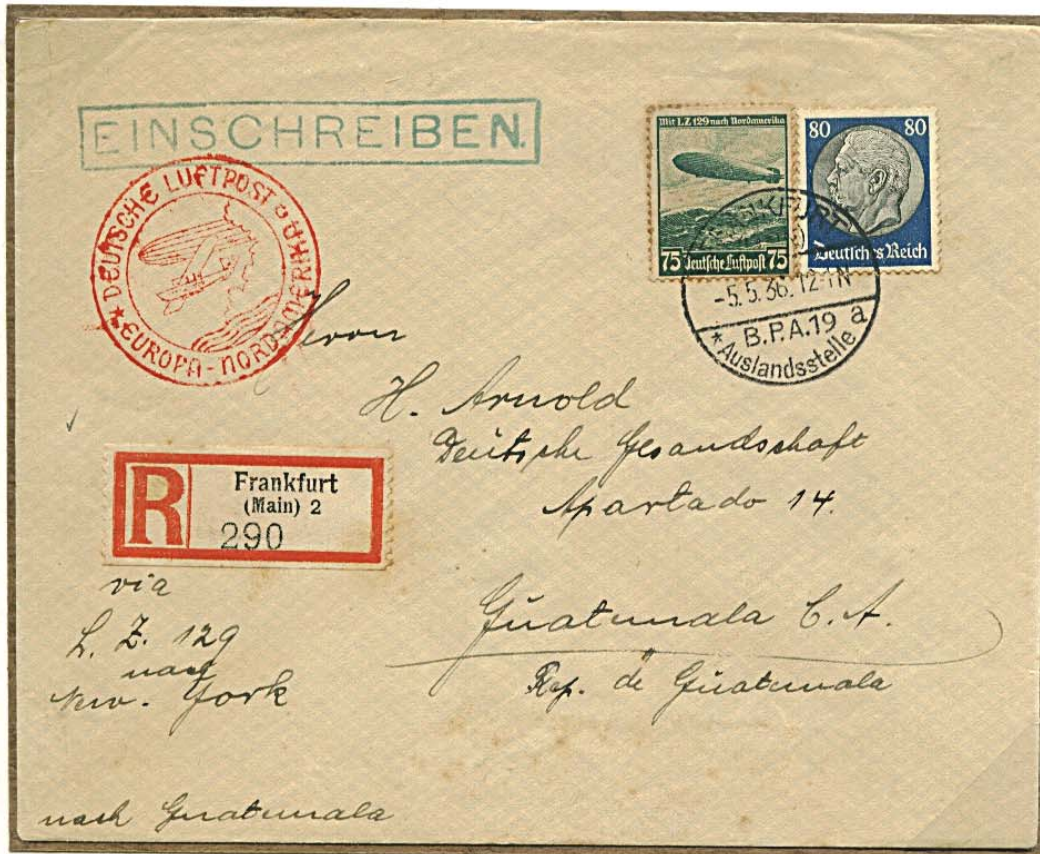 EINSCHREIBEN.
DEUTSCHE LUFTPOST
* EUROPA - NORDAMERIKA
Mit LZ 129 nach Nordamerika
75 Deutsche Luftpost 75
80 80
Deutsches Reich
FRANKFURT
-5.5.36.12-1N
B.P.A.19 a
* Auslandsstelle
Herrn
H. Arnold
Deutsche Gesandschaft
Apartado 14.
R Frankfurt
(Main) 2
290
via
L. Z. 129
nach
New-York
Guatemala C. A.
Rep. de Guatemala
nach Guatemala